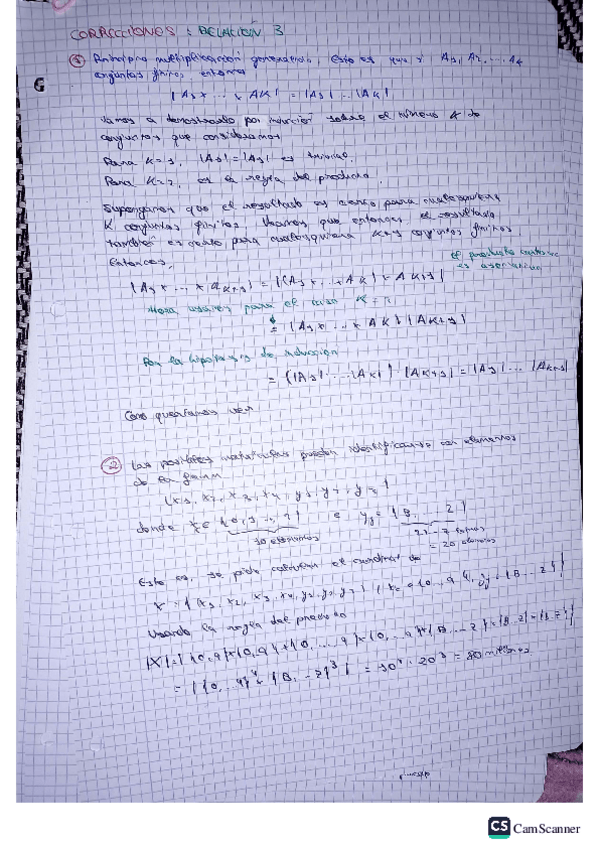 CORRECCIONES : RELACIÓN 3
① Principio multiplicación generalizado. Esto es que si A₁, A₂, ... Ak
conjuntos finitos, entonces
|A₁ x ... x AK| = |A₁| ... |AK|
Vamos a demostrarlo por inducción sobre el número K de
conjuntos que consideramos
Para K=1, |A₁| = |A₁| es trivial.
Para K=2, es la regla del producto.
Supongamos que el resultado es cierto para cualesquiera
K conjuntos finitos, veamos que entonces el resultado
también es cierto para cualesquiera K+1 conjuntos finitos.
Entonces,
el producto cartesiano
es asociativo
|A₁ x ... x AK+1| = |(A₁ x ... x AK) x AK+1|
Ahora para el caso K=2
= |A₁ x ... x AK| |AK+1|
Por la hipótesis de inducción
= (|A₁| ... |AK|) · |AK+1| = |A₁| ... |AK+1|
Como queríamos ver
② Las posibles matrículas pueden identificarse con elementos
de la forma
(x₁, x₂, x₃, x₄, y₁, y₂, y₃)
donde xi ∈ {0, 1, ..., 9} e yj = {B, ..., Z}
10 elementos
= 20 elementos
Esto es, se pide calcular el cardinal de
X = {(x₁, x₂, x₃, x₄, y₁, y₂, y₃) / xi = {0, ..., 9}, yj = {B ... Z}}
Usando la regla del producto
= |{0, ... 9}⁴ x {B, ... Z}³| = 10⁴ · 20³ = 80 millones
CS CamScanner